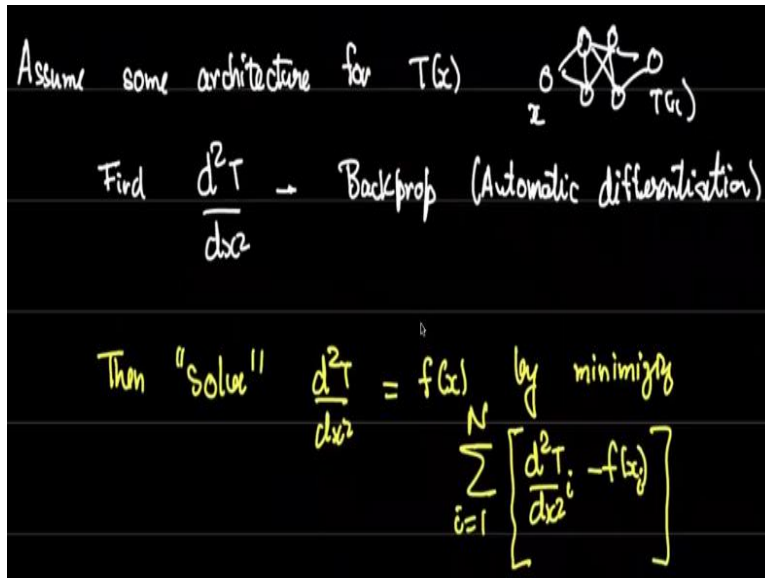 Assume some architecture for T(x)
x T(x)
Find d²T/dx² - Backprop (Automatic differentiation)
Then "solve" d²T/dx² = f(x) by minimizing
N
∑ [d²T/dx² i - f(xi)]
i=1